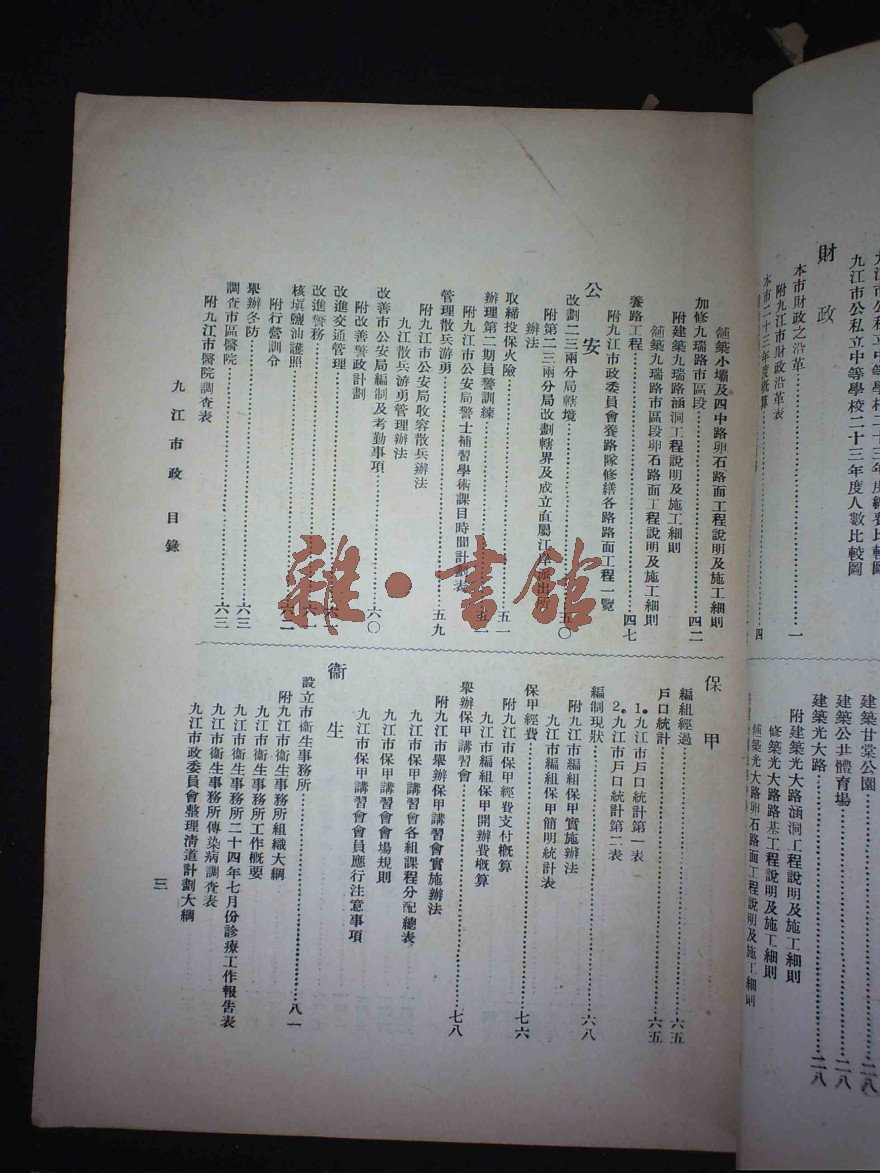 財政
九江市公私立中等學校二十三年度人數比較圖
本市財政之沿革……一
附九江市財政沿革表
本市二十三年度概算……四
建築甘棠公園……二八
建築公共體育場……二八
建築光大路……二八
附建築光大路涵洞工程說明及施工細則
修築光大路路基工程說明及施工細則
舖築光大路卵石路面工程說明及施工細則
舖築小壩及四中路卵石路面工程說明及施工細則
加修九瑞路市區段……四二
附建築九瑞路涵洞工程說明及施工細則
舖築九瑞路市區段卵石路面工程說明及施工細則
養路工程……四七
附九江市政委員會養路隊修繕各路路面工程一覽
公安
改劃二三兩分局轄境……五〇
附第二三兩分局改劃轄界及成立直屬江岸派出所
辦法
取締投保火險……五一
辦理第二期員警訓練……五一
附九江市公安局警士補習學術課目時間計劃表
管理散兵游勇……五九
附九江市公安局收容散兵辦法
九江散兵游勇管理辦法
改善市公安局編制及考勤事項……六〇
附改善警政計劃
改進交通管理
改進警務
核填鹽油護照……六二
附行營訓令
舉辦冬防……六三
調查市區醫院……六三
附九江市醫院調查表
保甲
編組經過……六五
戶口統計……六五
1.九江市戶口統計第一表
2.九江市戶口統計第二表
編制現狀……六八
附九江市編組保甲實施辦法
九江市編組保甲簡明統計表
保甲經費……七六
附九江市保甲經費支付概算
九江市編組保甲開辦費概算
舉辦保甲講習會……七八
附九江市舉辦保甲講習會實施辦法
九江市保甲講習會各組課程分配總表
九江市保甲講習會會場規則
九江市保甲講習會會員應行注意事項
衞生
設立市衞生事務所……八一
附九江市衞生事務所組織大綱
九江市衞生事務所工作概要
九江市衞生事務所二十四年七月份診療工作報告表
九江市衞生事務所傳染病調查表
九江市政委員會整理清道計劃大綱
九江市政 目錄
三
雜·書館